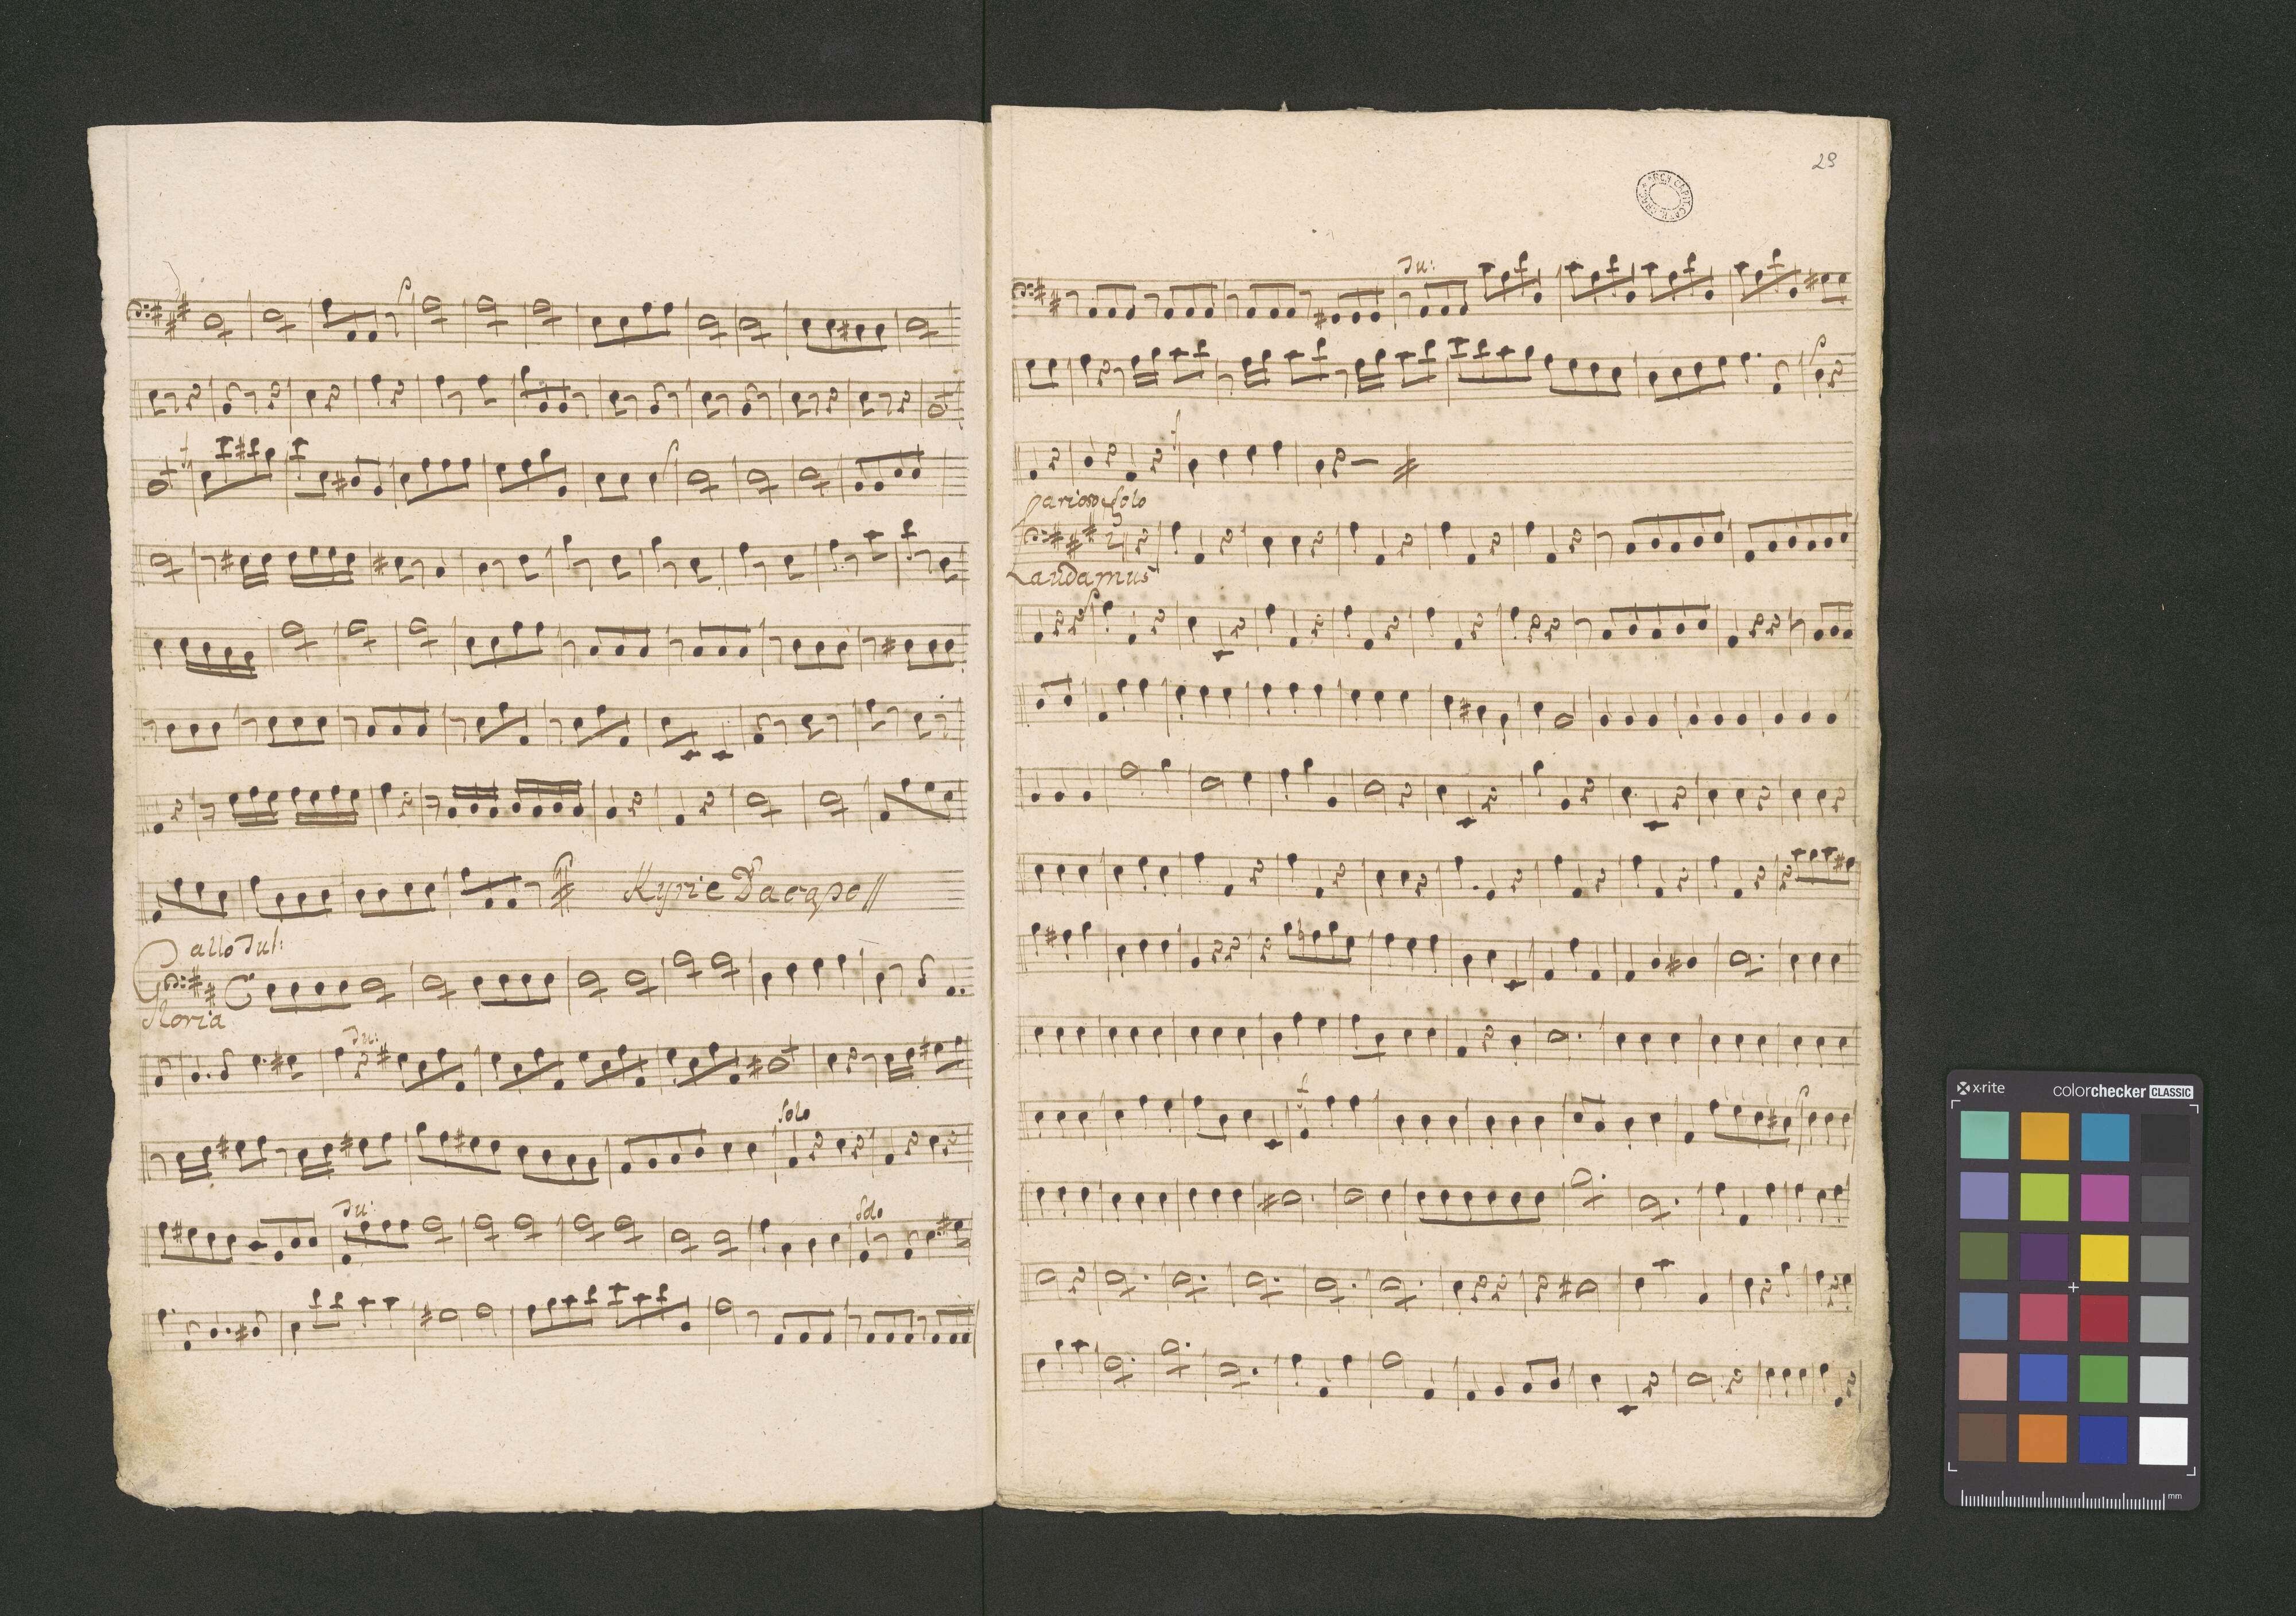 Kyrie Da capo //
allo Tut:
Gloria
Tu:
Solo
Tu:
Solo
29
Tu:
Garioso Solo
Laudamus
x-rite
colorchecker CLASSIC
mm